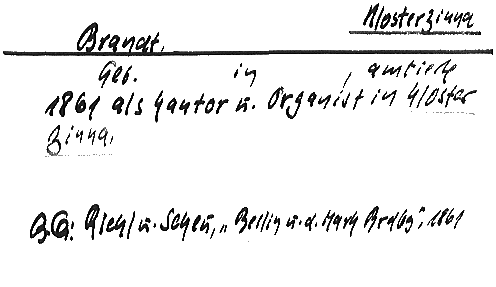 Klosterzinna
Brandt,
Geb. in , amtierte
1861 als Kantor u. Organist in Kloster
Zinna.
B.Q: Riehl u. Scheu, „Berlin u. d. Mark Brdbg", 1861